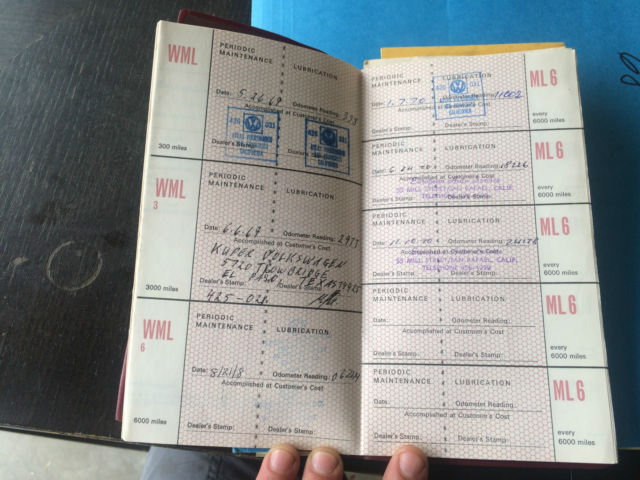 WML
PERIODIC MAINTENANCE
LUBRICATION
Date: 5.26.69
Odometer Reading: 333
Accomplished at Customer's Cost
426 031
426 031
CALIFORNIA
Dealer's Stamp:
300 miles
WML
3
PERIODIC MAINTENANCE
LUBRICATION
Date: 6.6.69
Odometer Reading: 2973
Accomplished at Customer's Cost
VOLKSWAGEN
5720 TROWBRIDGE
EL PASO, TEXAS
Dealer's Stamp:
Dealer's Stamp:
425-028
3000 miles
WML
6
PERIODIC MAINTENANCE
LUBRICATION
Date:
Odometer Reading:
Accomplished at Customer's Cost
Dealer's Stamp:
Dealer's Stamp:
6000 miles
PERIODIC MAINTENANCE
LUBRICATION
ML 6
Date: 1.7.70
Odometer Reading: 11802
Accomplished at Customer's Cost
426 031
CALIFORNIA
Dealer's Stamp:
Dealer's Stamp:
every
6000 miles
PERIODIC MAINTENANCE
LUBRICATION
ML 6
Odometer Reading: 18226
Accomplished at Customer's Cost
MILL STREET/SAN RAFAEL, CALIF.
every
6000 miles
PERIODIC MAINTENANCE
LUBRICATION
ML 6
Odometer Reading:
Accomplished at Customer's Cost
MILL STREET/SAN RAFAEL, CALIF.
TELEPHONE
every
6000 miles
PERIODIC MAINTENANCE
LUBRICATION
ML 6
Date:
Odometer Reading:
Accomplished at Customer's Cost
Dealer's Stamp:
Dealer's Stamp:
every
6000 miles
PERIODIC MAINTENANCE
LUBRICATION
ML 6
Date:
Odometer Reading:
Accomplished at Customer's Cost
Dealer's Stamp:
Dealer's Stamp:
every
6000 miles